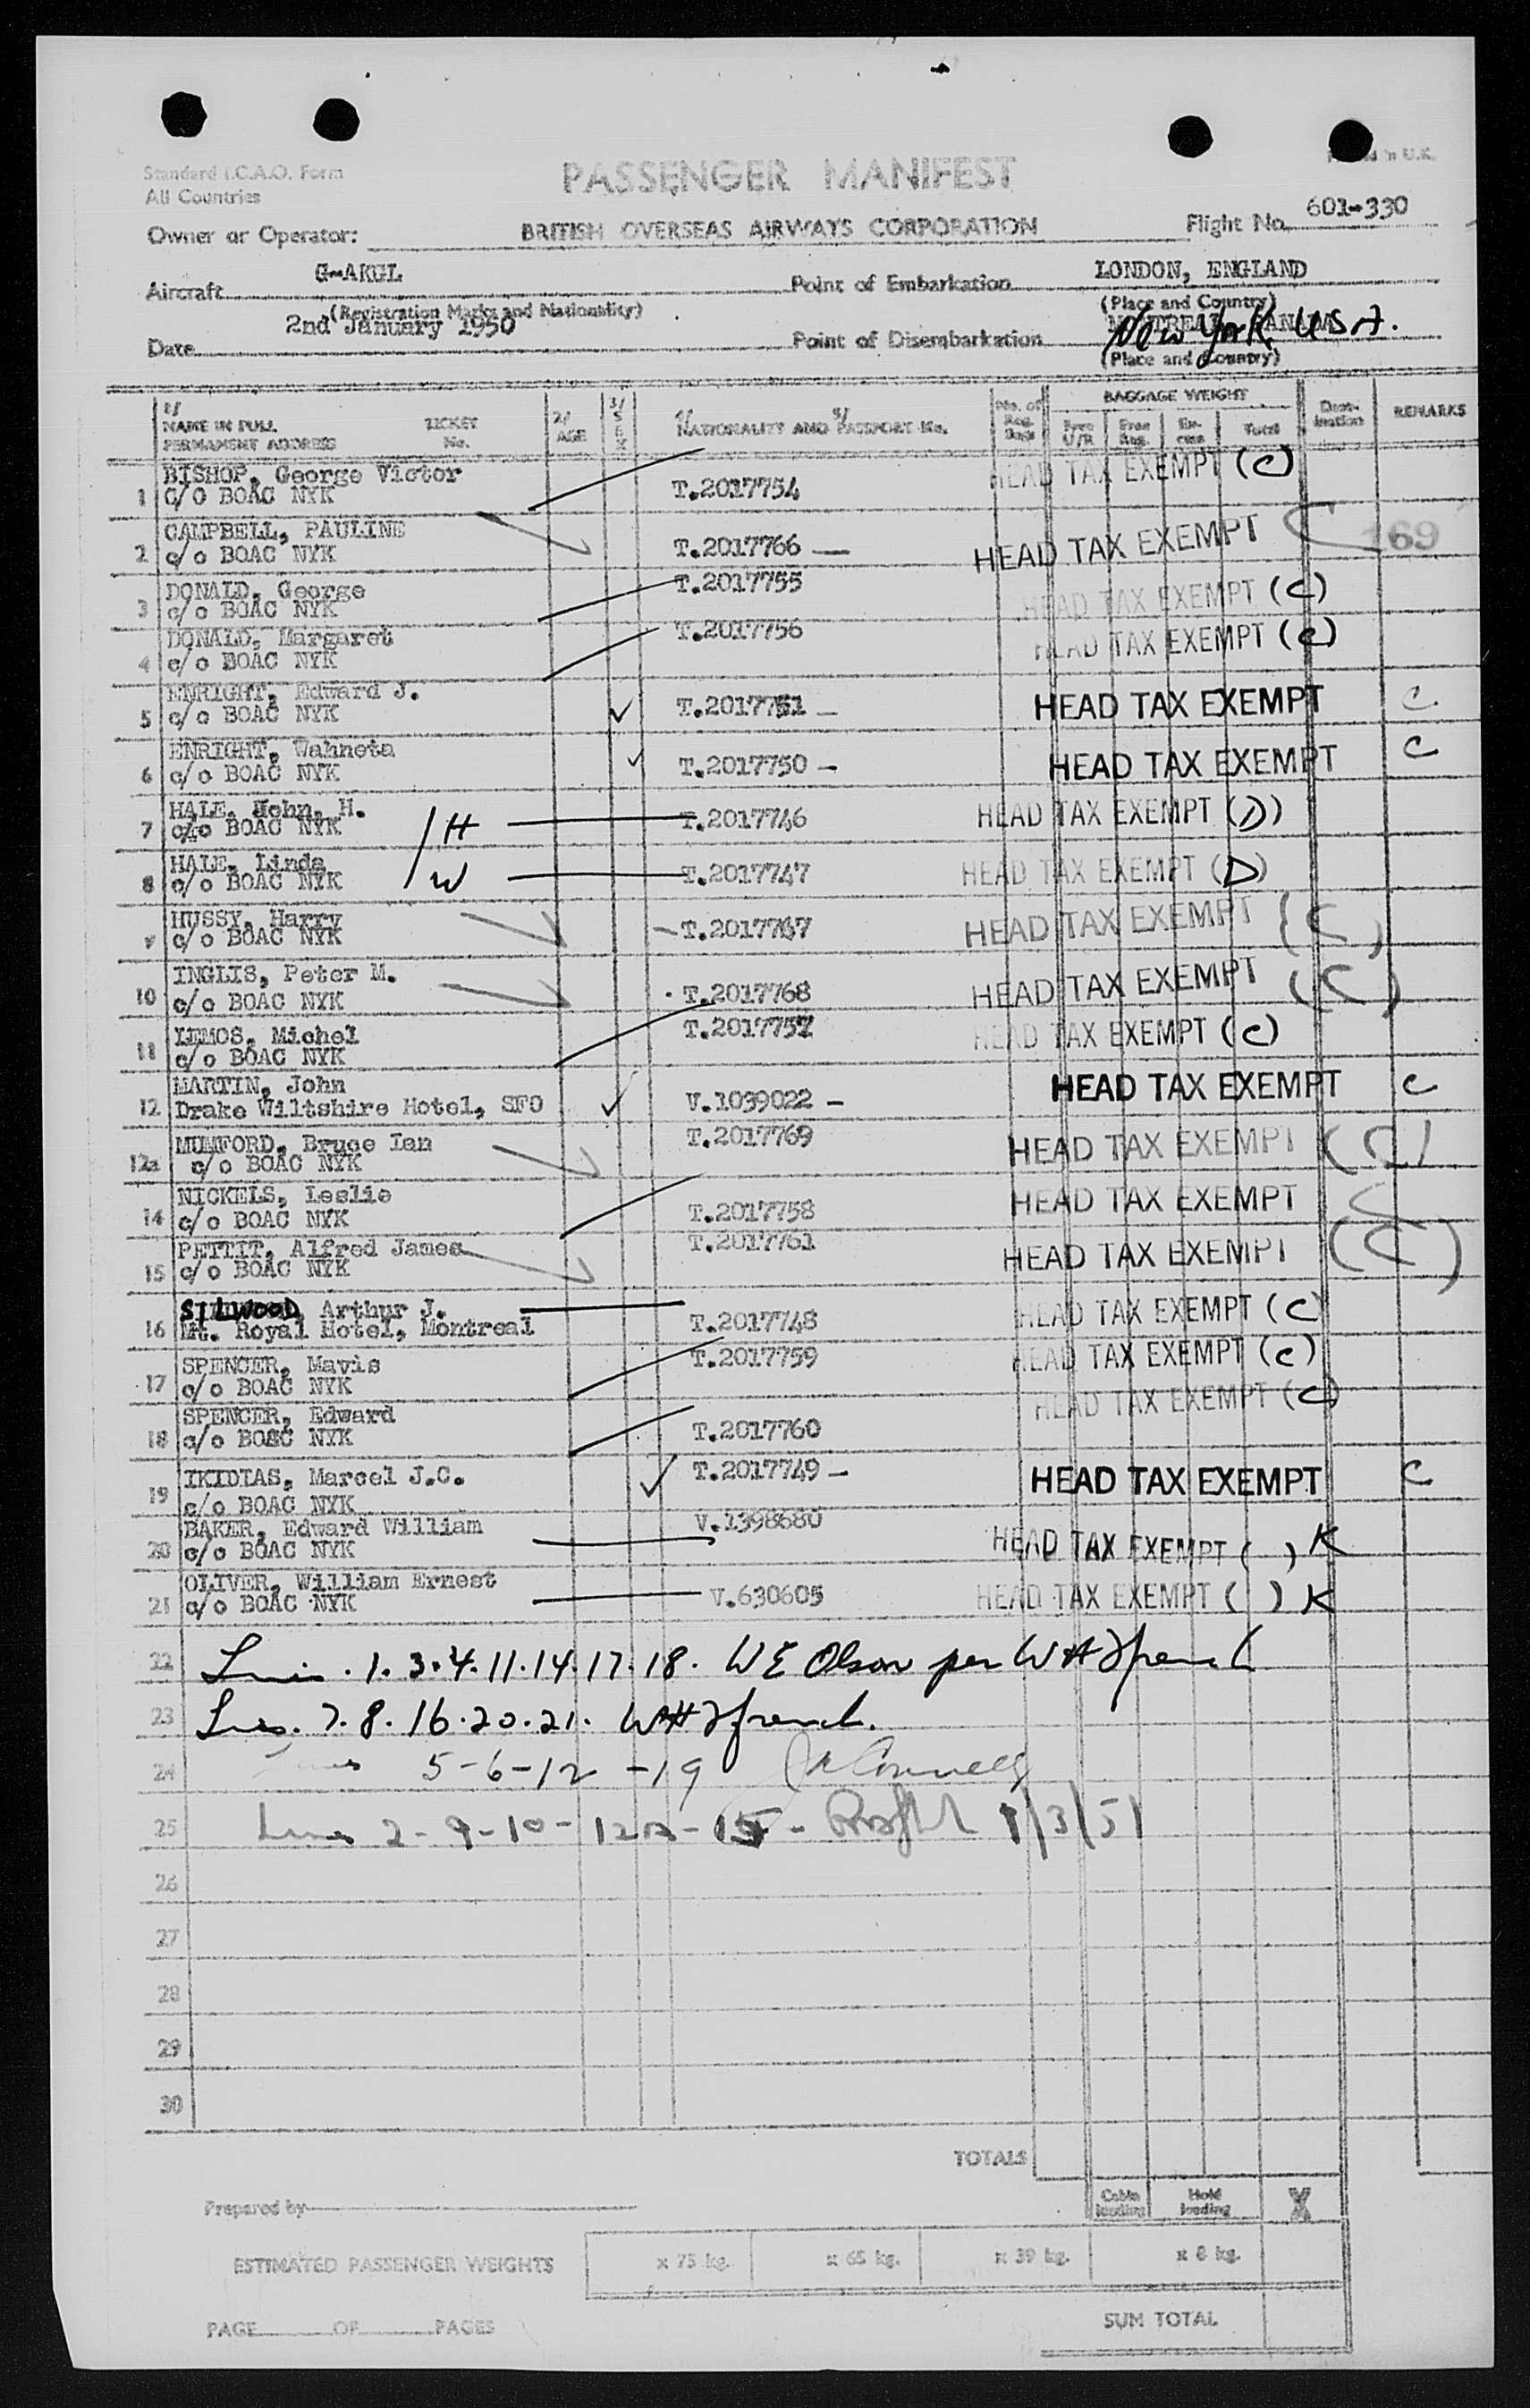 Standard I.C.A.O. Form
All Countries
PASSENGER MANIFEST
in U.K.
Owner or Operator: BRITISH OVERSEAS AIRWAYS CORPORATION Flight No. 601-330
Aircraft G-AKGL Point of Embarkation LONDON, ENGLAND
(Registration Marks and Nationality) (Place and Country)
Date 2nd January 1950 Point of Disembarkation New York USA.
(Place and Country)
1/ NAME IN FULL PERMANENT ADDRESS TICKET No. 2/ AGE 3/ SEX 4/ NATIONALITY AND 5/ PASSPORT No. No. of BAGGAGE WEIGHT Free U/R Free Reg. Ex-cess Total Dest-ination REMARKS
BISHOP, George Victor HEAD TAX EXEMPT (C)
1 C/O BOAC NYK T.2017754
CAMPBELL, PAULINE HEAD TAX EXEMPT C 169
2 c/o BOAC NYK T.2017766 —
DONALD, George T.2017755 HEAD TAX EXEMPT (C)
3 c/o BOAC NYK
DONALD, Margaret T.2017756 HEAD TAX EXEMPT (C)
4 c/o BOAC NYK
ENRIGHT, Edward J. HEAD TAX EXEMPT C
5 c/o BOAC NYK T.2017751 —
ENRIGHT, Wahneta HEAD TAX EXEMPT C
6 c/o BOAC NYK T.2017750 —
HALE, John, H. HEAD TAX EXEMPT (D)
7 c/o BOAC NYK H T.2017746
HALE, Linda HEAD TAX EXEMPT (D)
8 c/o BOAC NYK W T.2017747
HUSSY, Harry HEAD TAX EXEMPT (C)
9 c/o BOAC NYK T.2017767
INGLIS, Peter M. HEAD TAX EXEMPT (C)
10 c/o BOAC NYK T.2017768
LEMOS, Michel T.2017757 HEAD TAX EXEMPT (C)
11 c/o BOAC NYK
MARTIN, John HEAD TAX EXEMPT C
12 Drake Wiltshire Hotel, SFO V.1039022 —
MUMFORD, Bruce Ian T.2017769 HEAD TAX EXEMPT (C)
12a c/o BOAC NYK
NICKELS, Leslie HEAD TAX EXEMPT C
14 c/o BOAC NYK T.2017758
PETTIT, Alfred James T.2017761 HEAD TAX EXEMPT (C)
15 c/o BOAC NYK
SILWOOD, Arthur J. HEAD TAX EXEMPT (C)
16 Mt. Royal Hotel, Montreal T.2017748
SPENCER, Mavis T.2017759 HEAD TAX EXEMPT (C)
17 c/o BOAC NYK
SPENCER, Edward HEAD TAX EXEMPT (C)
18 c/o BOAC NYK T.2017760
IKIDIAS, Marcel J.C. T.2017749 — HEAD TAX EXEMPT C
19 c/o BOAC NYK
BAKER, Edward William V.1398680 HEAD TAX EXEMPT ( ) K
20 c/o BOAC NYK
OLIVER, William Ernest V.630605 HEAD TAX EXEMPT ( ) K
21 c/o BOAC NYK
22 Lines . 1. 3. 4. 11. 14. 17. 18. W E Olson per W H French
23 Lines. 7. 8. 16. 20. 21. W H French.
24 Lines 5-6-12-19
25 Lines 2-9-10-12A-15- 1/3/51
26
27
28
29
30
TOTALS
Prepared by Cabin loading Hold loading X
ESTIMATED PASSENGER WEIGHTS x 75 kg. x 65 kg. x 39 kg. x 8 kg.
PAGE OF PAGES SUM TOTAL